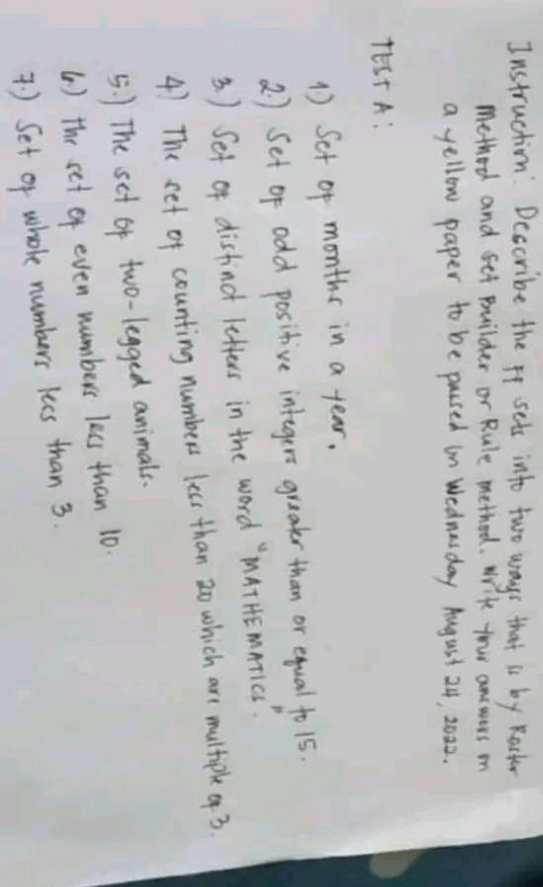 Instruction: Describe the ff sets into two ways that is by Roster
Method and Set Builder or Rule Method. Write your answers on
a yellow paper to be passed on Wednesday August 24, 2022.
TEST A:
1.) Set of months in a year.
2.) Set of odd positive integers greater than or equal to 15.
3.) Set of distinct letters in the word "MATHEMATICS".
4.) The set of counting numbers less than 20 which are multiple of 3.
5.) The set of two-legged animals.
6.) The set of even numbers less than 10.
7.) Set of whole numbers less than 3.